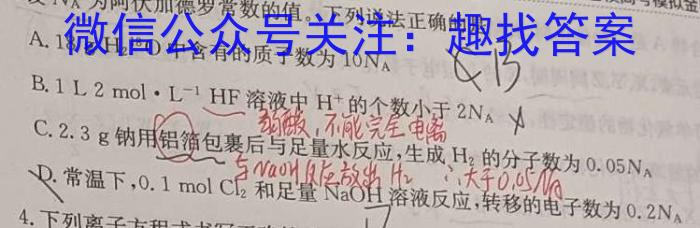 N_A 为阿伏加德罗常数的值。下列说法正确的
微信公众号关注：趣找答案
A. 18 g H₂¹⁸O 中含有的质子数为 10N_A
B. 1 L 2 mol·L⁻¹ HF 溶液中 H⁺ 的个数小于 2N_A
弱酸，不能完全电离
C. 2.3 g 钠用铝箔包裹后与足量水反应，生成 H₂ 的分子数为 0.05N_A
与NaOH反应放出 H₂ ∴大于0.05N_A
D. 常温下，0.1 mol Cl₂ 和足量 NaOH 溶液反应，转移的电子数为 0.2N_A
4. 下列离子方程式书写正确的